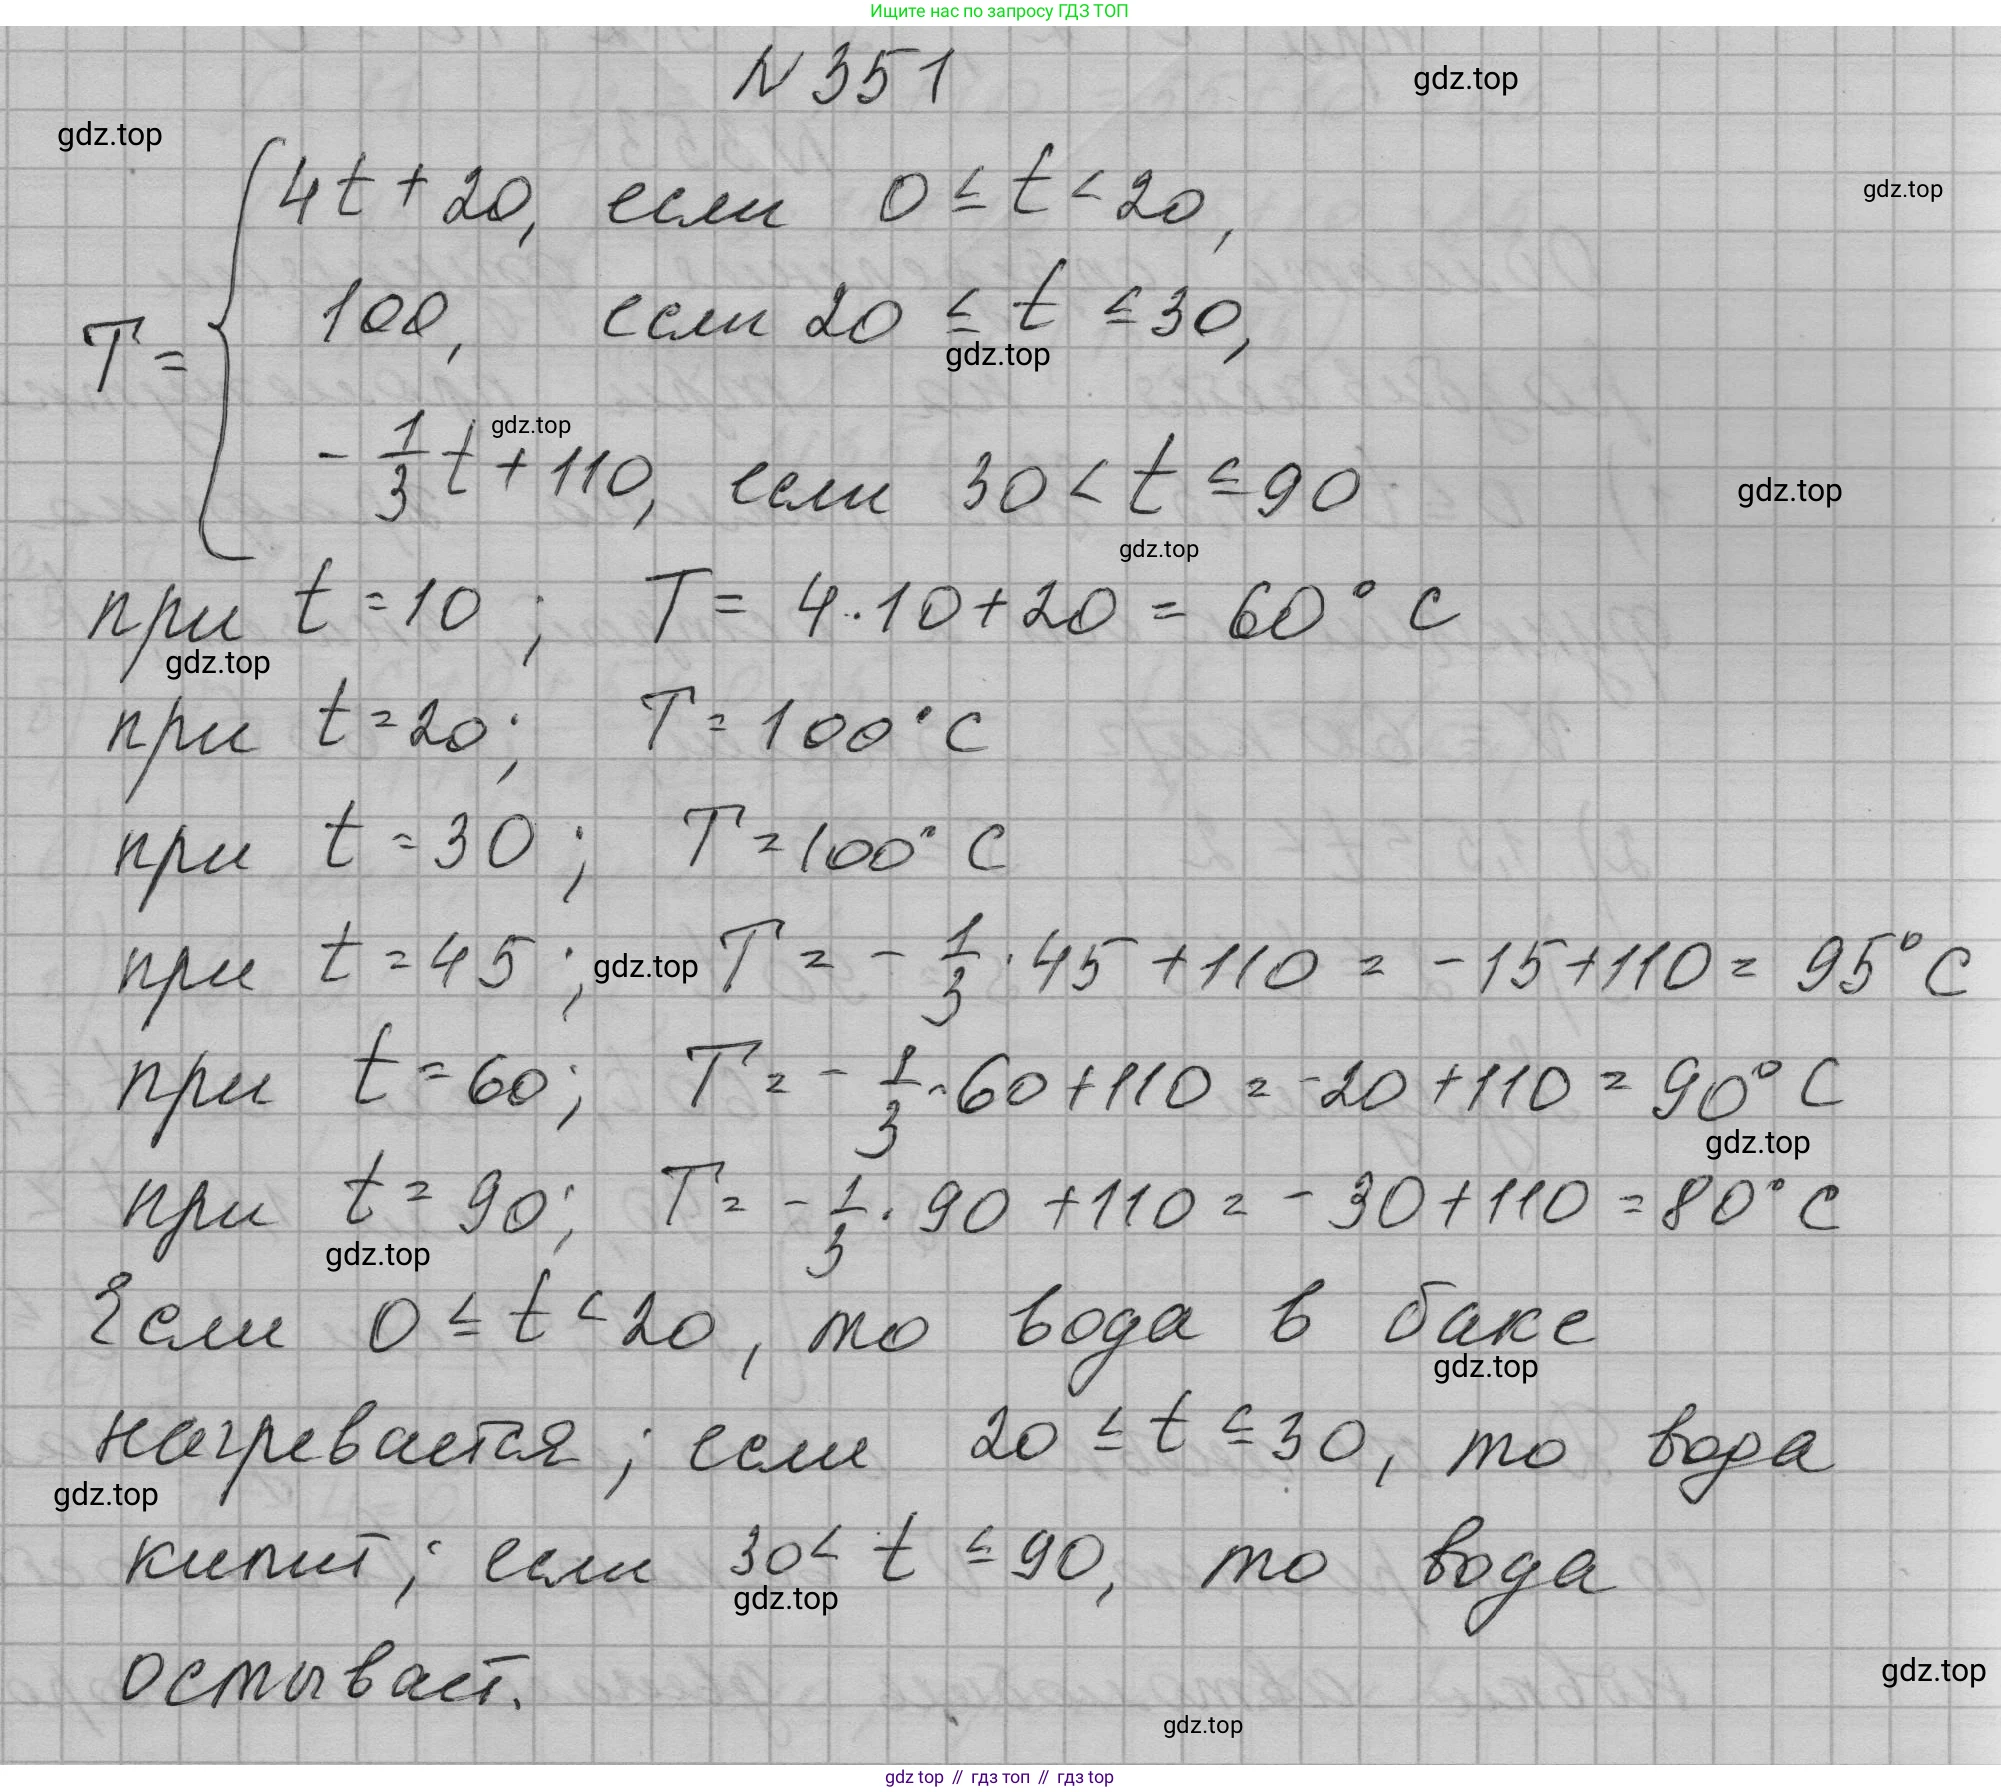 Ищите нас по запросу ГДЗ ТОП
N 351
gdz.top
gdz.top
4t + 20, если 0 ≤ t < 20,
gdz.top
T = { 100, если 20 ≤ t ≤ 30,
gdz.top
gdz.top
- 1/3 t + 110, если 30 < t ≤ 90
gdz.top
gdz.top
при t = 10; T = 4 · 10 + 20 = 60° C
gdz.top
при t = 20; T = 100° C
при t = 30; T = 100° C
при t = 45; gdz.top T = - 1/3 · 45 + 110 = -15 + 110 = 95° C
при t = 60; T = - 1/3 · 60 + 110 = -20 + 110 = 90° C
gdz.top
при t = 90; T = - 1/3 · 90 + 110 = - 30 + 110 = 80° C
gdz.top
Если 0 ≤ t < 20, то вода в баке
gdz.top
нагревается; если 20 ≤ t ≤ 30, то вода
gdz.top
кипит; если 30 < t ≤ 90, то вода
gdz.top
остывает.
gdz.top
gdz.top
gdz top // гдз топ // гдз top